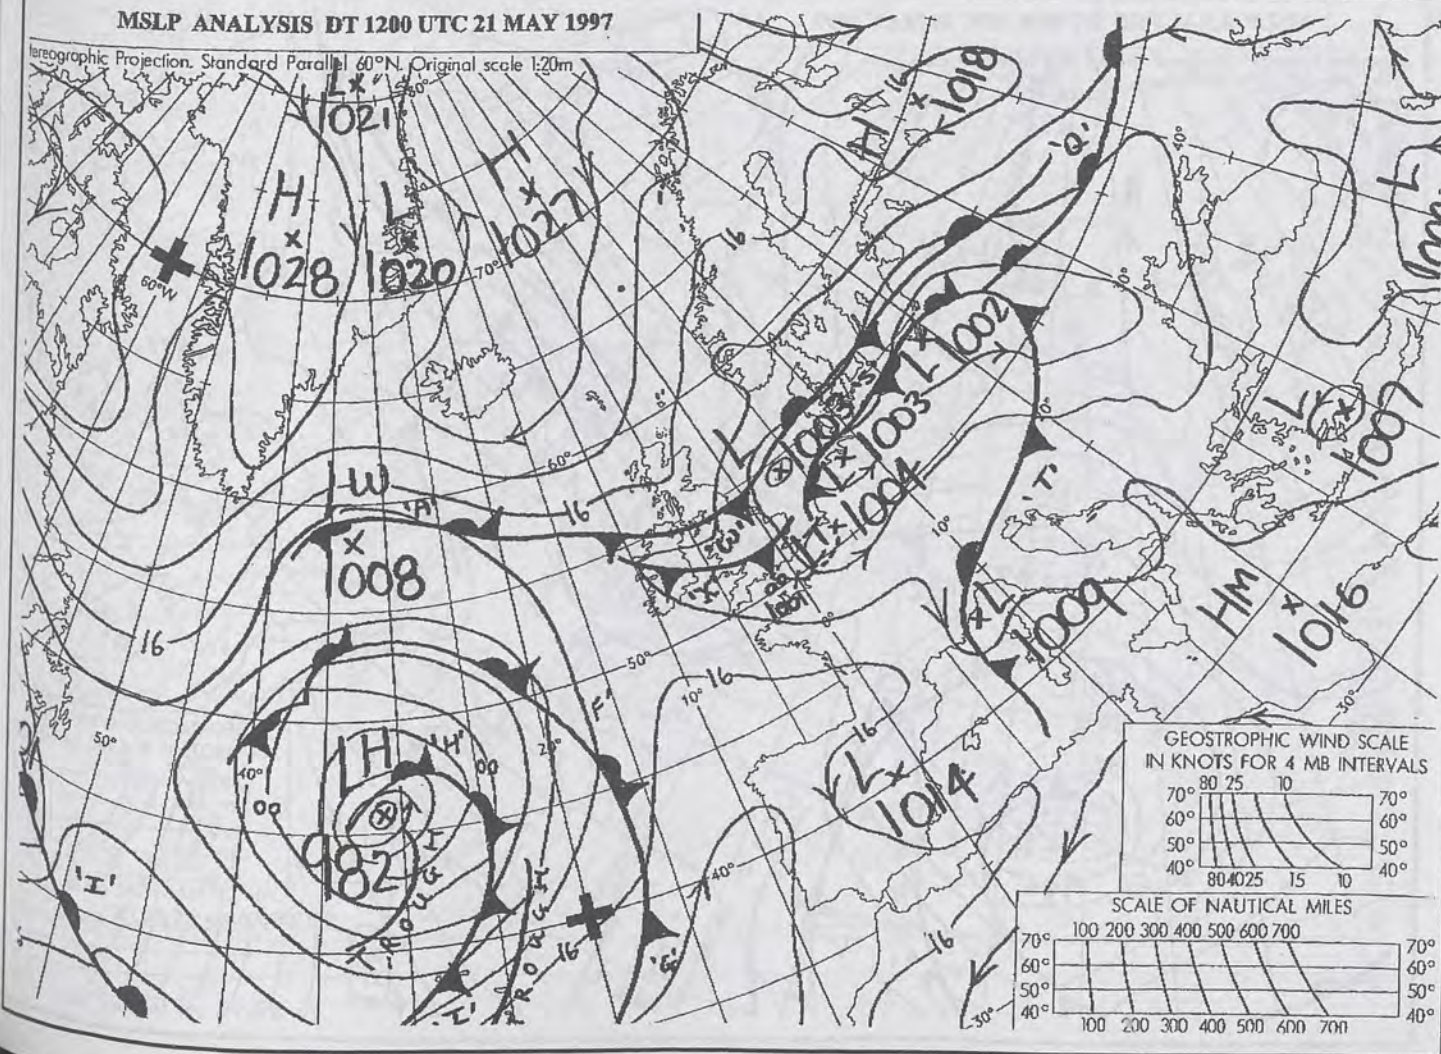 MSLP ANALYSIS DT 1200 UTC 21 MAY 1997
tereographic Projection. Standard Parallel 60°N. Original scale 1:20m
L
1021
80°
H
1028
L
1020
H
1027
70°
60°W
16
H
1018
16
'Q'
40°
L
L
1002
L
1003
L
1003
L
1004
L
1001
L
1007
'T'
10°
10°
0°
60°
LW
1008
'A'
16
16
'W'
'X'
50°
L
1009
HM
1016
30°
16
10°
'F'
20°
50°
40°
00
LH
982
'H'
00
TROUGH
TROUGH
'I'
'I'
16
'G'
40°
L
1014
16
16
30°
GEOSTROPHIC WIND SCALE
IN KNOTS FOR 4 MB INTERVALS
80 25 10
70° 70°
60° 60°
50° 50°
40° 40°
80 40 25 15 10
SCALE OF NAUTICAL MILES
100 200 300 400 500 600 700
70° 70°
60° 60°
50° 50°
40° 40°
100 200 300 400 500 600 700